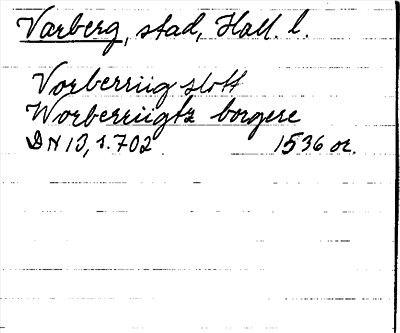 Varberg, stad, Hall. l.
Vorberriig slott
Worberriigtz borgere
DN 10, s. 702 1536 or.